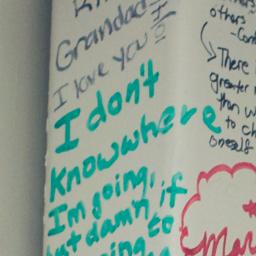 Grandad
I love you
I don't
know where
I'm going,
but damn if
to
others
There
greater
than w
to ch
oneself
Mar